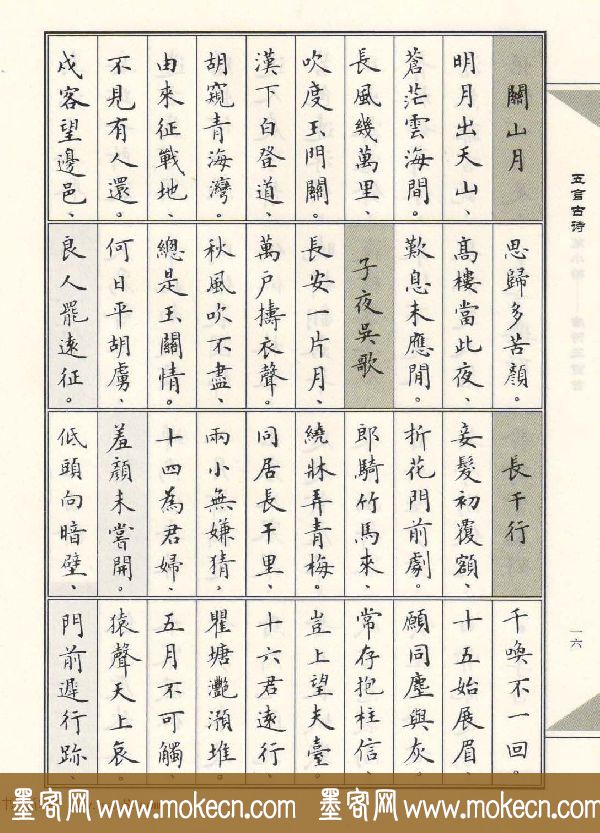 關山月
明月出天山、
蒼茫雲海間。
長風幾萬里、
吹度玉門關。
漢下白登道、
胡窺青海灣。
由來征戰地、
不見有人還。
戍客望邊邑、
思歸多苦顏。
高樓當此夜、
歎息未應閒。
子夜吳歌
長安一片月、
萬戶擣衣聲。
秋風吹不盡、
總是玉關情。
何日平胡虜、
良人罷遠征。
長干行
妾髮初覆額、
折花門前劇。
郎騎竹馬來、
繞牀弄青梅。
同居長干里、
兩小無嫌猜、
十四為君婦、
羞顏未嘗開。
低頭向暗壁、
千喚不一回。
十五始展眉、
願同塵與灰。
常存抱柱信、
豈上望夫臺。
十六君遠行、
瞿塘灩澦堆。
五月不可觸、
猿聲天上哀。
門前遲行跡、
五言古诗
一六
墨客网 www.mokecn.com 墨客网 www.mokecn.com